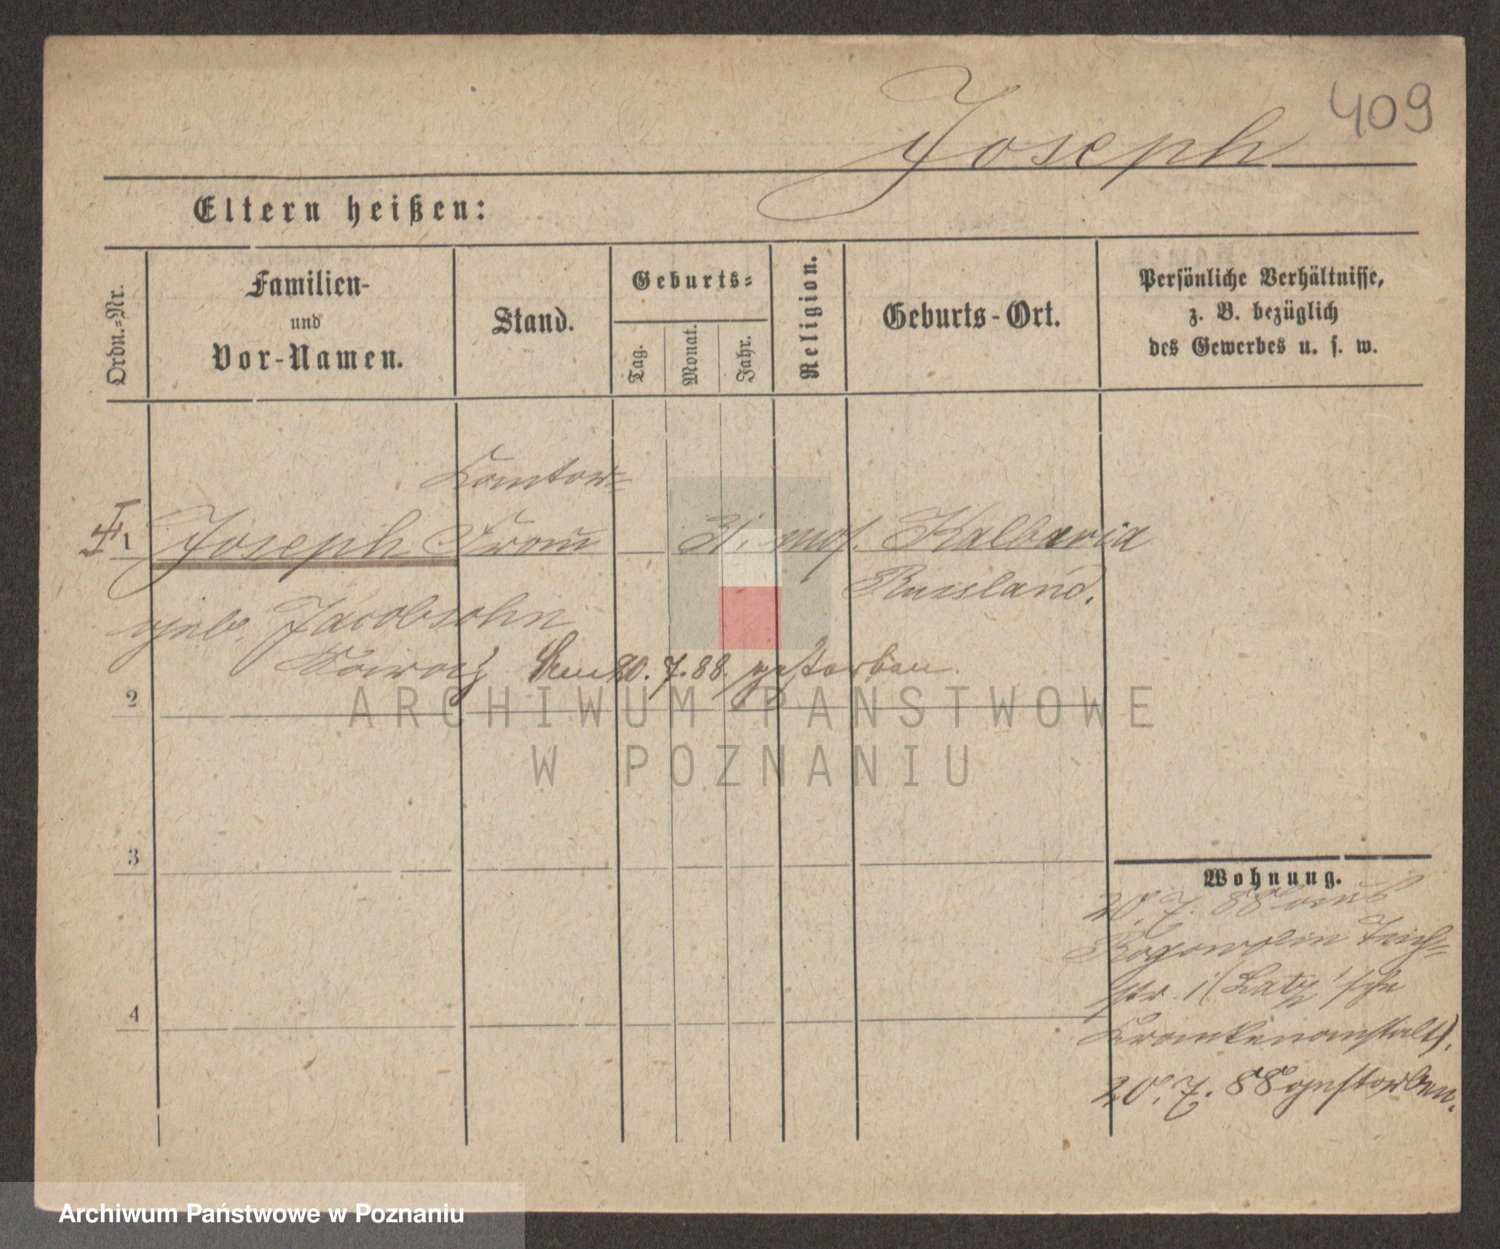 409
Joseph
Eltern heißen:
Ordn.-Nr.
Familien-
und
Vor-Namen.
Stand.
Geburts-
Tag.
Monat.
Jahr.
Religion.
Geburts-Ort.
Persönliche Verhältnisse,
z. B. bezüglich
des Gewerbes u. s. w.
Kantor-
1 Joseph Frau 31. mos. Kalbaria
Russland.
geb. Jacobsohn
den 20. 7. 88 gestorben.
2
ARCHIWUM PAŃSTWOWE
W POZNANIU
3
Wohnung.
20. 7. 88 aus
Rogowolin Teich-
str. (Latz'sche
4
Krankenanstalt).
20. 7. 88 gestorben.
Archiwum Państwowe w Poznaniu